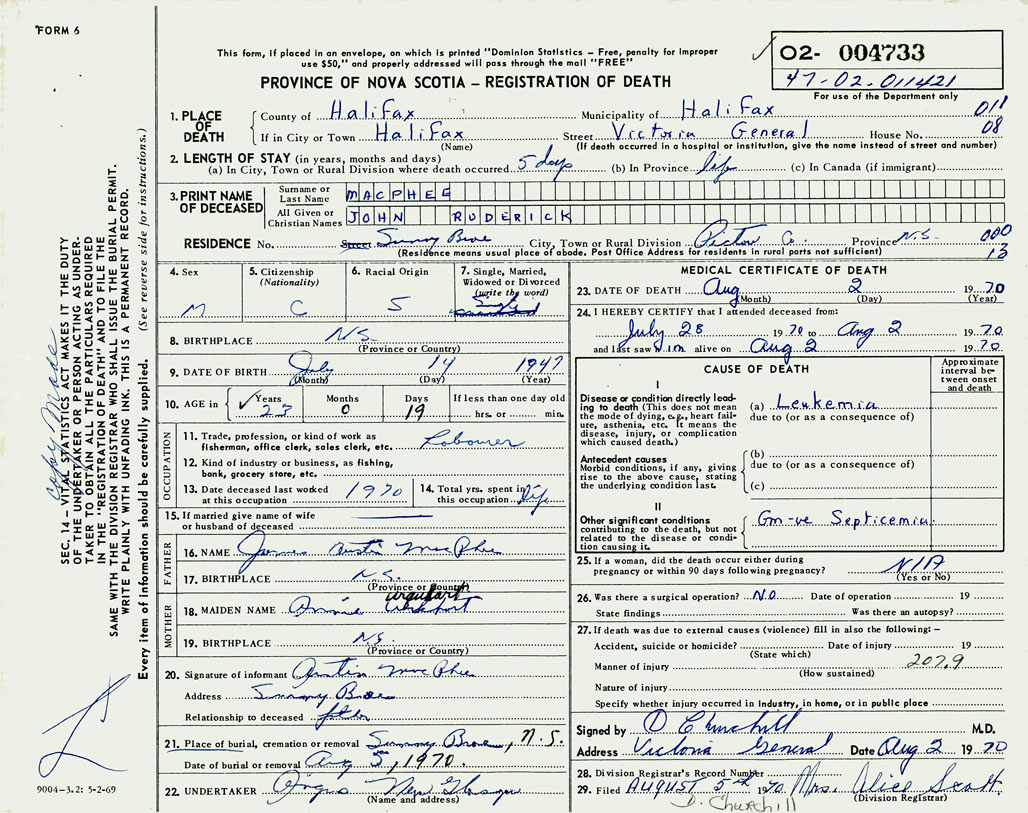 FORM 6
This form, if placed in an envelope, on which is printed "Dominion Statistics – Free, penalty for improper
use $50," and properly addressed will pass through the mail "FREE"
PROVINCE OF NOVA SCOTIA – REGISTRATION OF DEATH
02- 004733
47-02-011421
For use of the Department only
SEC. 14 – VITAL STATISTICS ACT MAKES IT THE DUTY
OF THE UNDERTAKER OR PERSON ACTING AS UNDER-
TAKER TO OBTAIN ALL THE PARTICULARS REQUIRED
IN THE "REGISTRATION OF DEATH" AND TO FILE THE
SAME WITH THE DIVISION REGISTRAR WHO SHALL ISSUE THE BURIAL PERMIT.
WRITE PLAINLY WITH UNFADING INK. THIS IS A PERMANENT RECORD.
Every item of information should be carefully supplied. (See reverse side for instructions.)
Copy Made
1. PLACE OF DEATH
County of Halifax Municipality of Halifax 011
If in City or Town Halifax Street Victoria General House No. 08
(Name) (If death occurred in a hospital or institution, give the name instead of street and number)
2. LENGTH OF STAY (in years, months and days)
(a) In City, Town or Rural Division where death occurred 5 days (b) In Province life (c) In Canada (if immigrant)
3. PRINT NAME OF DECEASED
Surname or Last Name MACPHEE
All Given or Christian Names JOHN RUDERICK
RESIDENCE No. Street Sunny Brae City, Town or Rural Division Pictou Co. Province N.S. 000
(Residence means usual place of abode. Post Office Address for residents in rural parts not sufficient) 13
4. Sex M
5. Citizenship (Nationality) C
6. Racial Origin S
7. Single, Married, Widowed or Divorced (write the word) Single
8. BIRTHPLACE N.S.
(Province or Country)
9. DATE OF BIRTH July 14 1947
(Month) (Day) (Year)
10. AGE in Years 23 Months 0 Days 19 If less than one day old hrs. or min.
OCCUPATION
11. Trade, profession, or kind of work as
fisherman, office clerk, sales clerk, etc. Labourer
12. Kind of industry or business, as fishing,
bank, grocery store, etc.
13. Date deceased last worked at this occupation 1970
14. Total yrs. spent in this occupation life
15. If married give name of wife
or husband of deceased
FATHER
16. NAME James Austin MacPhee
17. BIRTHPLACE N.S.
(Province or Country)
MOTHER
urquhart
18. MAIDEN NAME Annie
19. BIRTHPLACE N.S.
(Province or Country)
20. Signature of informant Austin MacPhee
Address Sunny Brae
Relationship to deceased father
21. Place of burial, cremation or removal Sunny Brae, N.S.
Date of burial or removal Aug 5, 1970.
22. UNDERTAKER Angus New Glasgow
(Name and address)
9004-3.2: 5-2-69
MEDICAL CERTIFICATE OF DEATH
23. DATE OF DEATH Aug 2 1970
(Month) (Day) (Year)
24. I HEREBY CERTIFY that I attended deceased from:
July 28 1970 to Aug 2 1970
and last saw him alive on Aug 2 1970
CAUSE OF DEATH
Approximate interval between onset and death
I
Disease or condition directly lead-
ing to death (This does not mean
the mode of dying, e.g., heart fail-
ure, asthenia, etc. It means the
disease, injury, or complication
which caused death.)
(a) Leukemia
due to (or as a consequence of)
Antecedent causes
Morbid conditions, if any, giving
rise to the above cause, stating
the underlying condition last.
(b)
due to (or as a consequence of)
(c)
II
Other significant conditions
contributing to the death, but not
related to the disease or condi-
tion causing it.
Gm-ve Septicemia
25. If a woman, did the death occur either during
pregnancy or within 90 days following pregnancy? N/A
(Yes or No)
26. Was there a surgical operation? NO Date of operation 19
State findings Was there an autopsy?
27. If death was due to external causes (violence) fill in also the following: –
Accident, suicide or homicide? Date of injury 19
(State which)
Manner of injury 207.9
(How sustained)
Nature of injury
Specify whether injury occurred in industry, in home, or in public place
Signed by D Churchill M.D.
Address Victoria General Date Aug 2 1970
28. Division Registrar's Record Number
29. Filed AUGUST 5th 1970 Mrs. Alice Scott
(Division Registrar)
D. Churchill